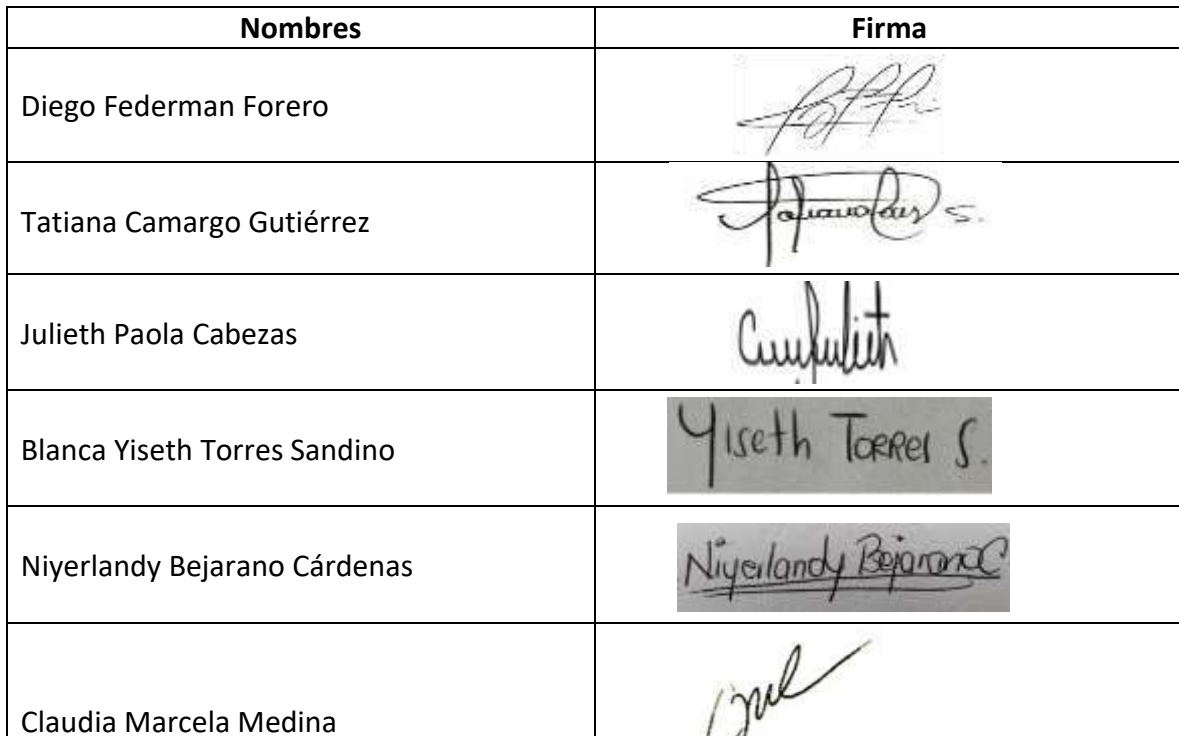 Nombres Firma
Diego Federman Forero
Tatiana Camargo Gutiérrez S.
Julieth Paola Cabezas
Blanca Yiseth Torres Sandino Yiseth Torres S.
Niyerlandy Bejarano Cárdenas Niyerlandy Bejarano C
Claudia Marcela Medina